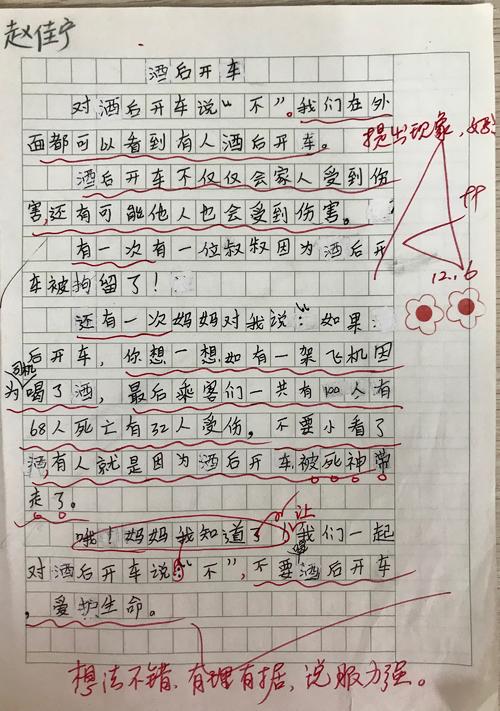 赵佳宁
酒后开车
对酒后开车说“不”。我们在外
面都可以看到有人酒后开车。
提出现象,好!
酒后开车不仅仅会家人受到伤
害,还有可能他人也会受到伤害。
有一次有一位叔叔因为酒后开
车被拘留了!
12.6
还有一次妈妈对我说:“如果
后开车,你想一想,如有一架飞机因
为司机喝了酒,最后乘客们一共有100人有
68人死亡有32人受伤。不要小看了
酒,有人就是因为酒后开车被死神带
走了。”
哦!妈妈我知道了,让我们一起
对酒后开车说:“不”,不要酒后开车
,爱护生命。
想法不错,有理有据,说服力强。